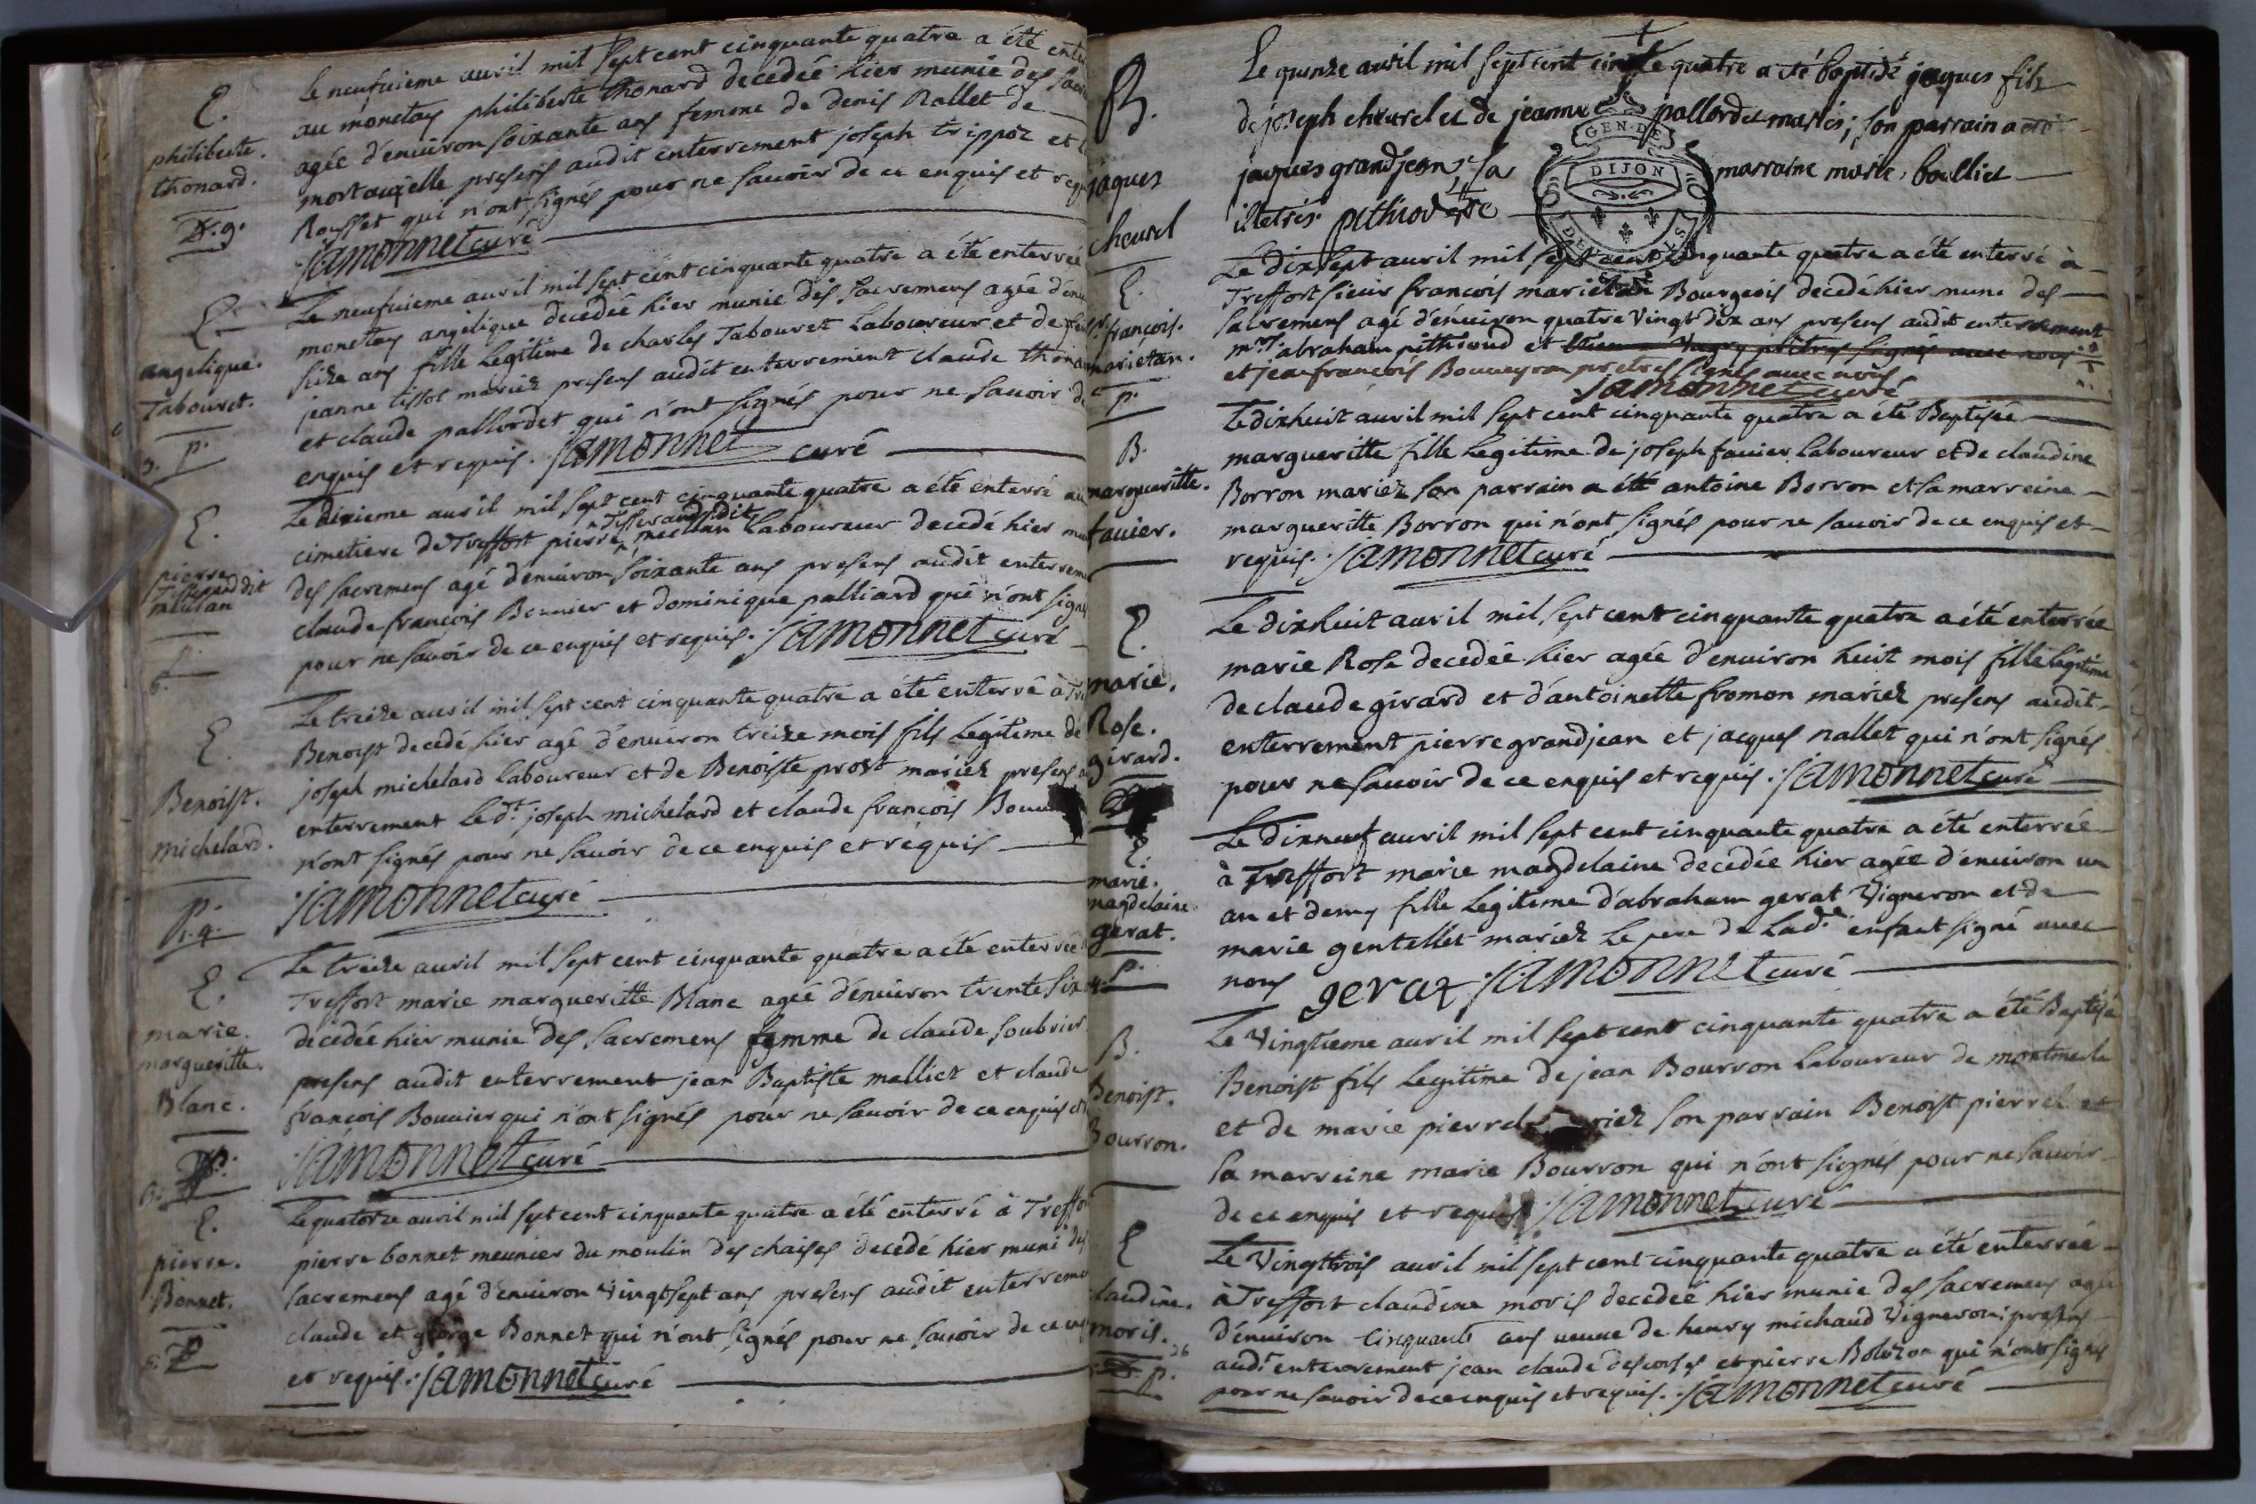 E.
philiberte.
thonard.
D. 9.
Le neufuieme auril mil sept cent cinquante quatre a été
au monetay philiberte thonard decedée hier munie des
agée d'enuiron soixante ans femme de denis Rallet de
mortaux elle presens audit enterrement joseph trippoz et
Rousset qui n'ont signés pour ne sauoir de ce enquis et
jamonnet curé
E.
angelique.
Tabouret.
p.
Le neufuieme auril mil sept cent cinquante quatre a été enterrée
monetay angelique decedée hier munie des sacremens agée
seize ans fille legitime de charles Tabouret laboureur et de
jeanne tissot mariez presens audit enterrement claude
et claude pallordet qui n'ont signés pour ne sauoir de
enquis et requis. jamonnet curé
E.
pierre
Tisserand dit
meulan
Le dixieme auril mil sept cent cinquante quatre a été enterré au
Tisserand dit
cimetiere de Treffort pierre meillan laboureur decedé hier
des sacremens agé d'enuiron soixante ans presens audit
claude françois Bouuier et dominique palliard qui n'ont
pour ne sauoir de ce enquis et requis. jamonnet curé
E.
Benoist.
michelard.
p.
Le treize auril mil sept cent cinquante quatre a été enterré à
Benoist decedé hier agé d'enuiron treize mois fils legitime de
joseph michelard laboureur et de Benoiste prost mariez presens
enterrement Le dt. joseph michelard et claude françois
n'ont signés pour ne sauoir de ce enquis et requis
jamonnet curé
E.
marie.
margueritte.
Blanc.
Le treize auril mil sept cent cinquante quatre a été enterrée
Treffort marie margueritte Blanc agée d'enuiron trente six
decedée hier munie des sacremens femme de claude soubrier
presens audit enterrement jean Baptiste malliet et claude
françois Bouuier qui n'ont signés pour ne sauoir de ce enquis et
jamonnet curé
E.
pierre.
Bonnet.
Le quatorze auril mil sept cent cinquante quatre a été enterré à
pierre bonnet meunier du moulin des chaises decedé hier muni des
sacremens agé d'enuiron Vingt sept ans presens audit
claude et george Bonnet qui n'ont signés pour ne sauoir de ce
et requis. jamonnet curé
B.
jaques
cheurel
Le quinze auril mil sept cent cinqte quatre a été baptisé jaques fils
de joseph cheurel et de jeanne pallordet mariés; son parrain a été
jaques grandjean; sa marraine marie bolliet
illetrés. pithioud ptre
GEN. DE
DIJON
E.
Sr. françois.
marietan.
p.
Le dix sept auril mil sept cent cinquante quatre a été enterré à
Treffort sieur françois marietan Bourgeois decedé hier muni des
sacremens agé d'enuiron quatre Vingt dix ans presens audit enterrement
mre. abraham pithioud et
et jean françois Bouueyron pretres signés auec nous
jamonnet curé
B.
margueritte.
fauier.
Le dixhuit auril mil sept cent cinquante quatre a été Baptisée
margueritte fille legitime de joseph fauier laboureur et de claudine
Borron mariez son parrain a été antoine Borron et sa marreine
margueritte Borron qui n'ont signés pour ne sauoir de ce enquis et
requis. jamonnet curé
E.
marie.
Rose.
girard.
Le dixhuit auril mil sept cent cinquante quatre a été enterrée
marie Rose decedée hier agée d'enuiron huit mois fille legitime
de claude girard et d'antoinette fromon mariez presens audit
enterrement pierre grandjean et jacques nallet qui n'ont signés
pour ne sauoir de ce enquis et requis. jamonnet curé
E.
marie.
magdelaine.
gerat.
p.
Le dixneuf auril mil sept cent cinquante quatre a été enterrée
à Treffort marie magdelaine decedée hier agée d'enuiron un
an et demy fille legitime d'abraham gerat Vigneron et de
marie gentellet mariez Le pere de Lade. enfant signé auec
nous geraz jamonnet curé
B.
Benoist.
Bourron.
Le Vingtieme auril mil sept cent cinquante quatre a été Baptisé
Benoist fils legitime de jean Bourron laboureur de montmerle
et de marie pierrel mariez son parrain Benoist pierrel et
sa marreine marie Bourron qui n'ont signés pour ne sauoir
de ce enquis et requis jamonnet curé
E
claudine.
moris.
p.
Le Vingttrois auril mil sept cent cinquante quatre a été enterrée
à Treffort claudine moris decedée hier munie des sacremens agée
d'enuiron cinquante ans ueuue de henry michaud Vigneron; presens
audt. enterrement jean claude descorses et pierre Bolozon qui n'ont signés
pour ne sauoir de ce enquis et requis. jamonnet curé